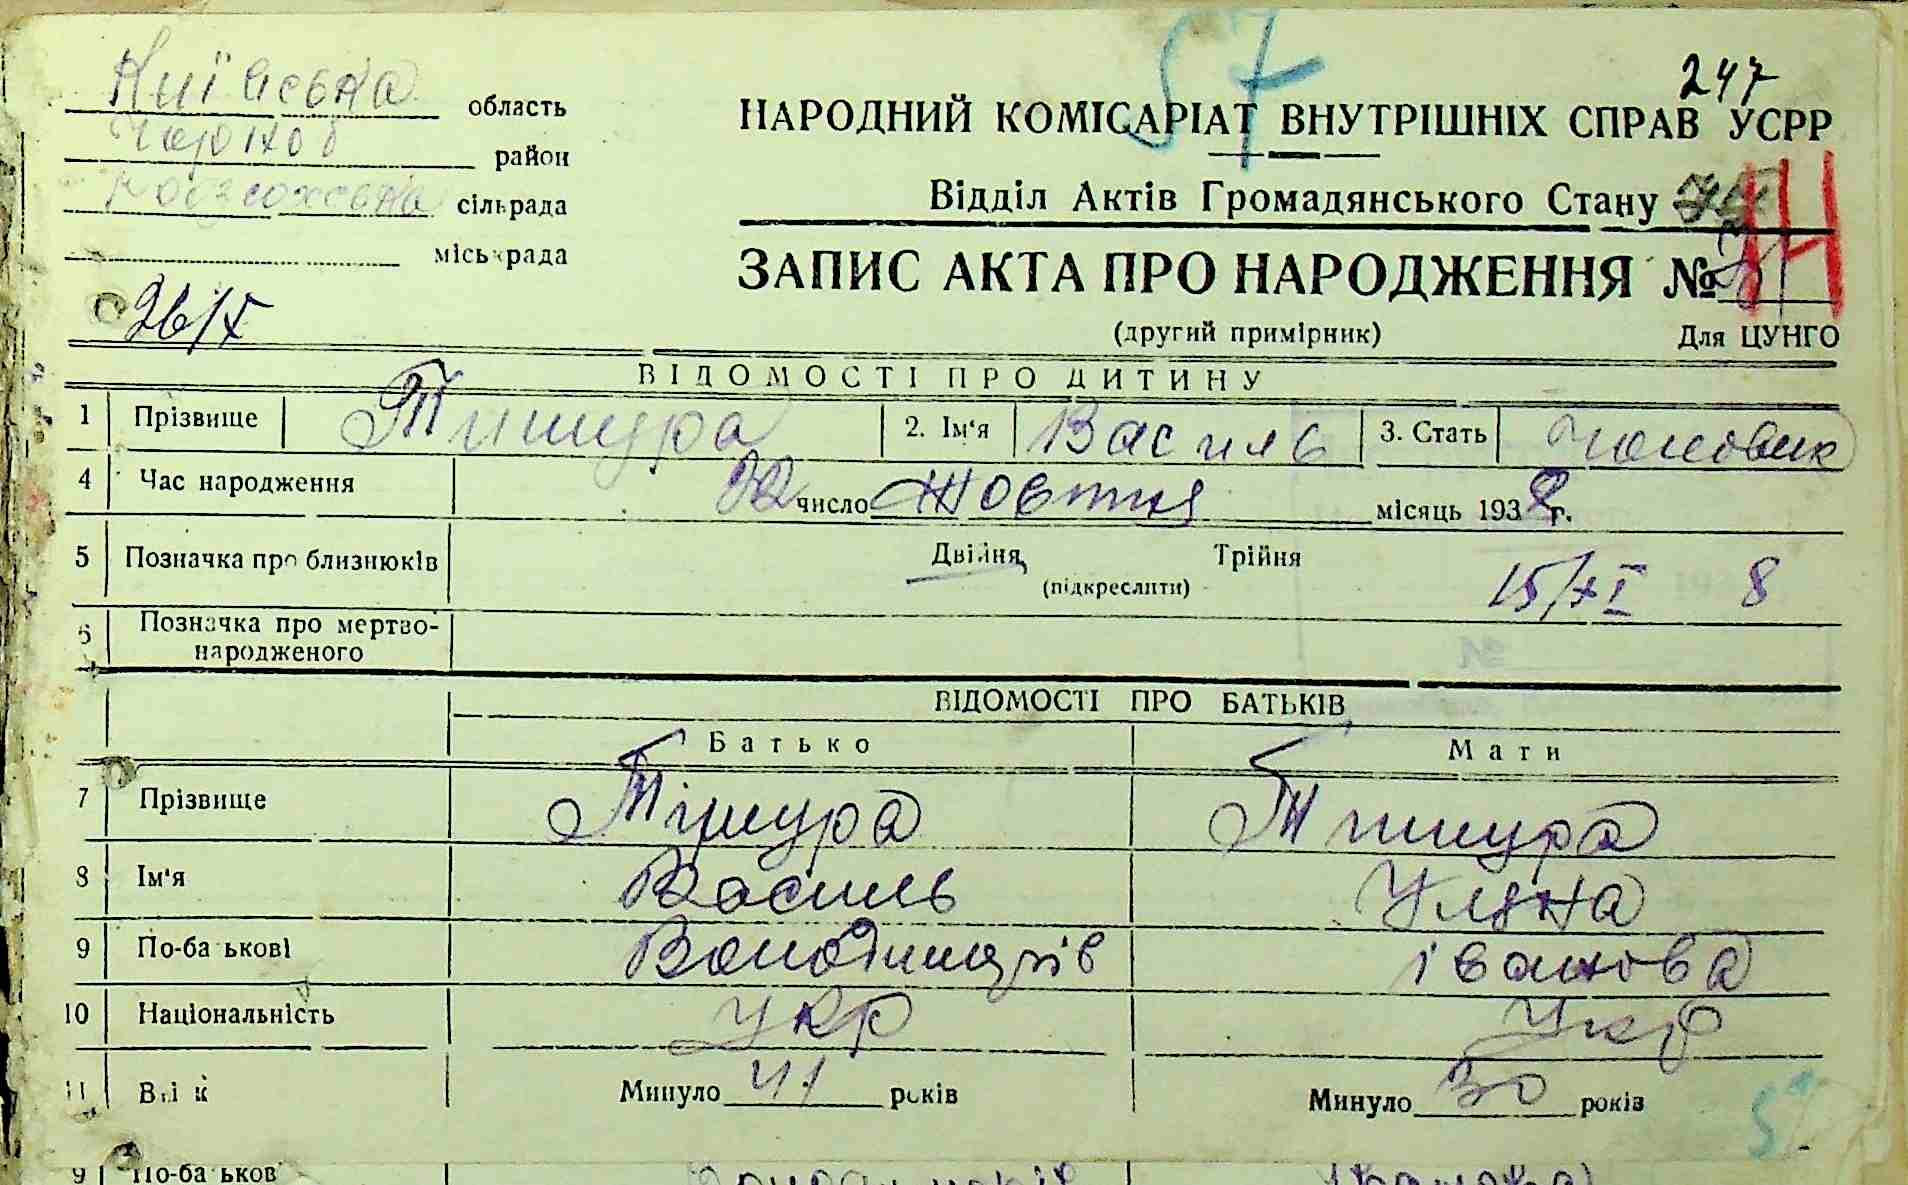 57
247
Київська область
НАРОДНИЙ КОМІСАРІАТ ВНУТРІШНІХ СПРАВ УСРР
район
Відділ Актів Громадянського Стану
сільрада
міськрада
ЗАПИС АКТА ПРО НАРОДЖЕННЯ №
26/X
(другий примірник) Для ЦУНГО
ВІДОМОСТІ ПРО ДИТИНУ
1 Прізвище Тишура 2. Ім'я Василь 3. Стать Чоловік
4 Час народження 22 число Жовтня місяць 1938 г.
5 Позначка про близнюків Двійня Трійня
(підкреслити)
15/XI 8
6 Позначка про мертво-
народженого
№
ВІДОМОСТІ ПРО БАТЬКІВ
Батько Мати
7 Прізвище Тішура Тишура
8 Ім'я Василь Уляна
9 По-ба ькові Володимирів Іванова
10 Національність Укр Укр
11 Вік Минуло 41 років Минуло 30 років
9 По-ба ькові